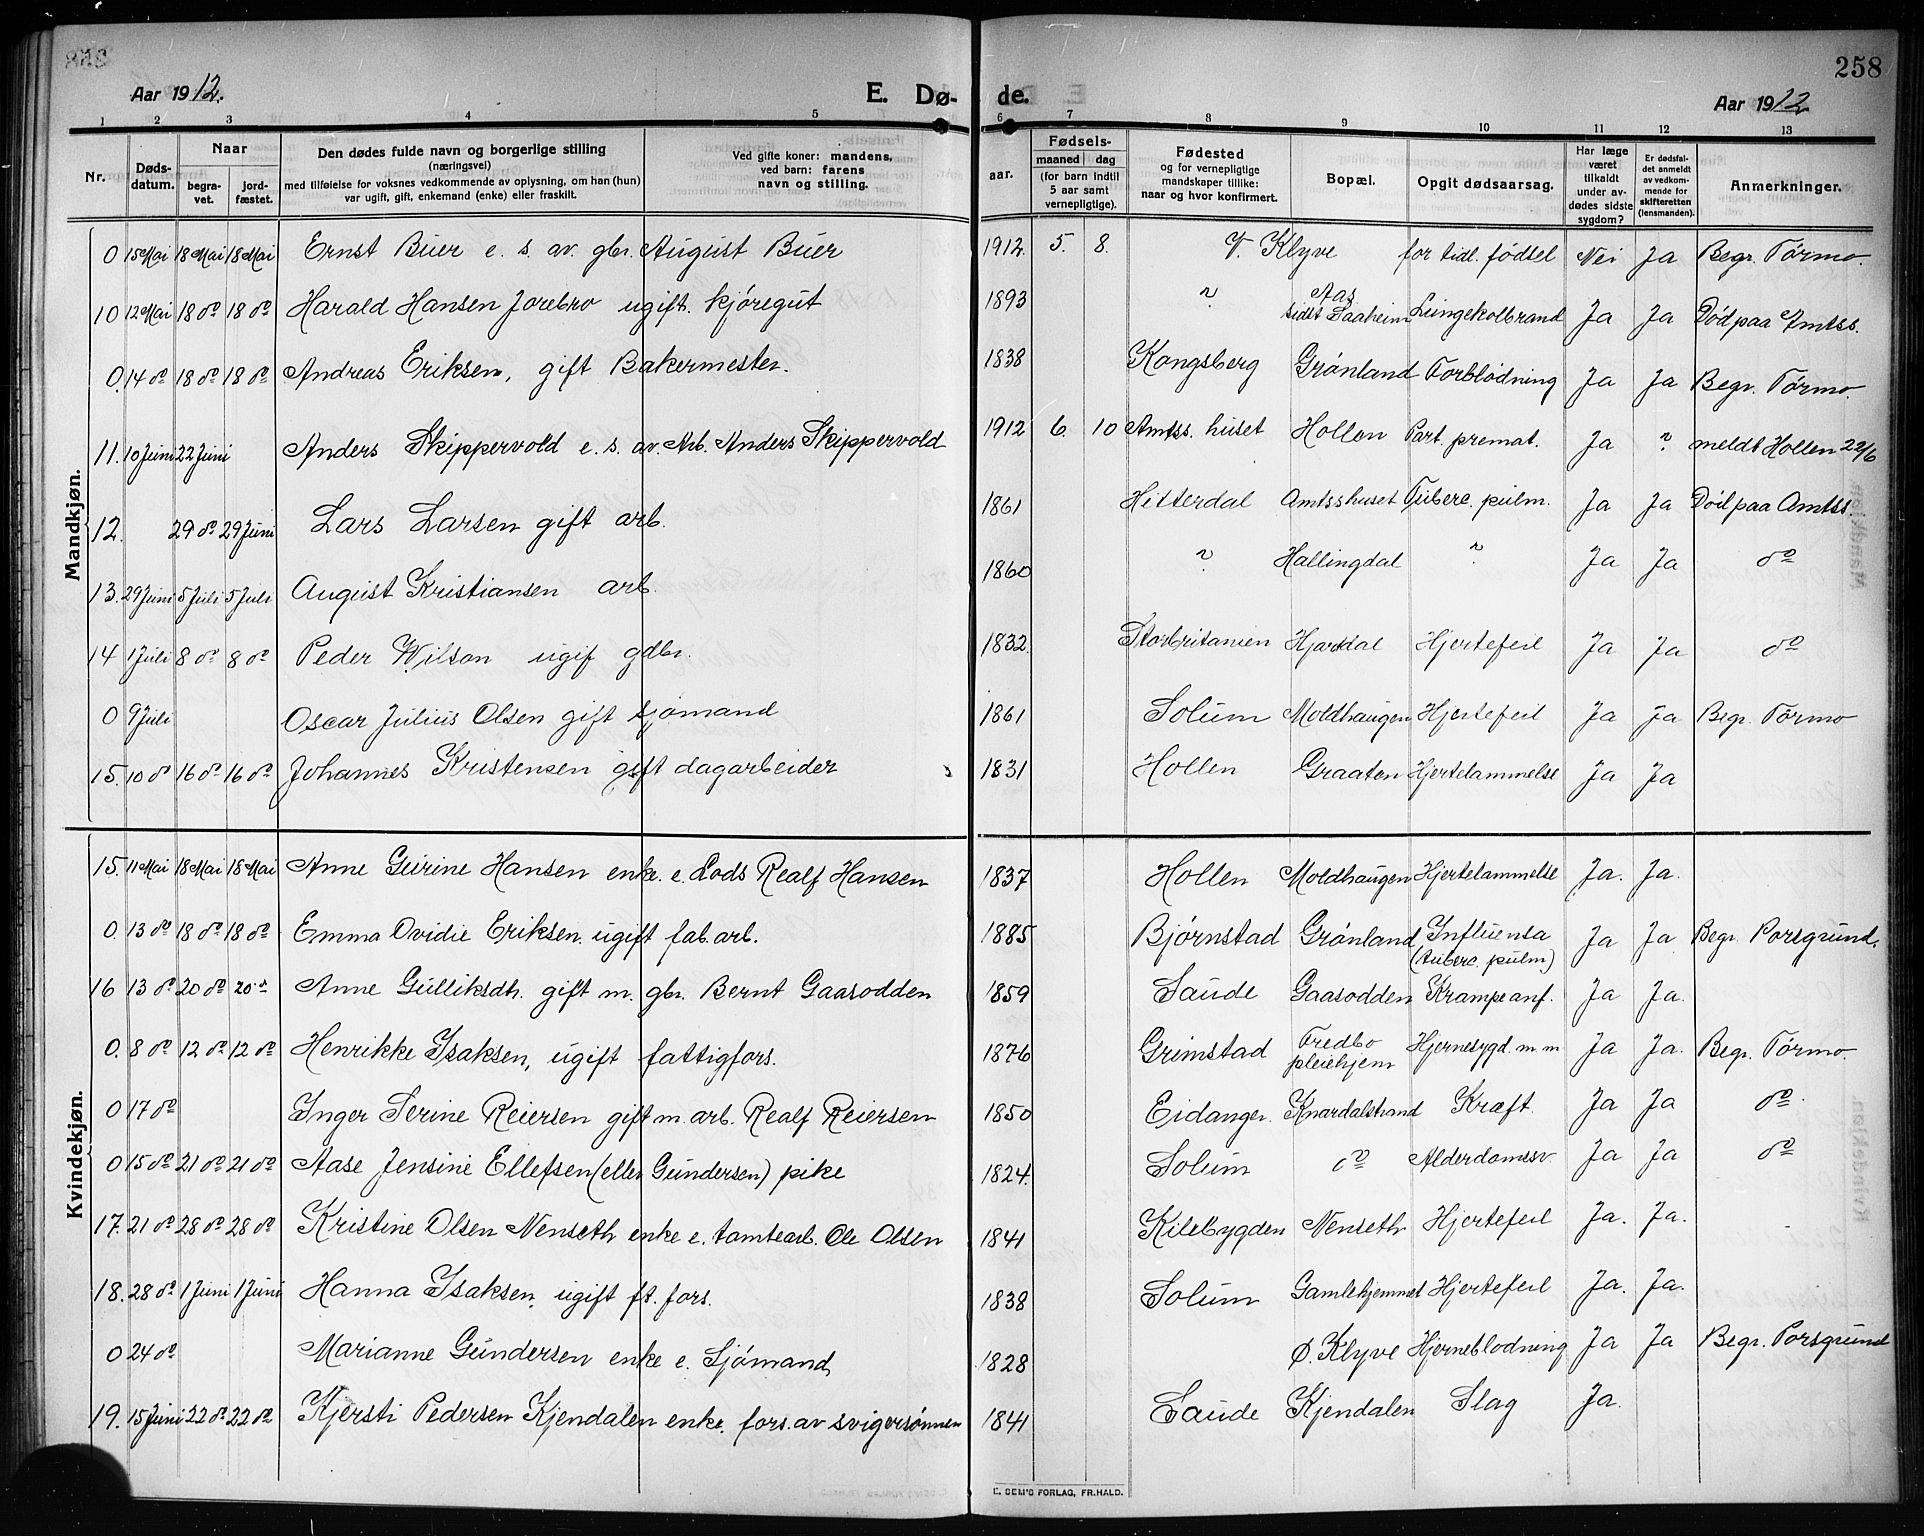 258
Aar 1912.
E. Dø-
de.
Aar 1912
1 2 3 4 5 6 7 8 9 10 11 12 13
Nr.
Døds-datum.
Naar
begra-vet.
jord-fæstet.
Den dødes fulde navn og borgerlige stilling
(næringsvei)
med tilføielse for voksnes vedkommende av oplysning, om han (hun)
var ugift, gift, enkemand (enke) eller fraskilt.
Ved gifte koner: mandens,
ved barn: farens
navn og stilling.
Fødsels-
aar.
maaned dag
(for barn indtil
5 aar samt
vernepligtige).
Fødested
og for vernepligtige
mandskaper tillike:
naar og hvor konfirmert.
Bopæl.
Opgit dødsaarsag.
Har læge
været
tilkaldt
under av-
dødes sidste
sygdom?
Er dødsfal-
det anmeldt
av vedkom-
mende for
skifteretten
(lensmanden).
Anmerkninger.
Mandkjøn.
0 15 Mai 18 Mai 18 Mai Ernst Buer e. s. av. gbr. August Buer 1912 5. 8. V. Klyve for tidl. fødsel Nei Ja Begr. Tørmo.
10 12 Mai 18 do 18 do Harald Hansen Jorebro ugift. kjøregut 1893 " Aas sidst Saaheim Lungekolbrand Ja Ja Død paa Amtss.
0. 14 do 18 do 18 do Andreas Eriksen, gift Bakermester. 1838 Kongsberg Grønland Forblødning Ja Ja Begr. Tørmo.
11. 10 Juni 22 Juni Anders Skippervold e. s. av. Arb. Anders Skippervold 1912 6. 10 Amtss. huset Hollen Part. premat. Ja ? meldt Hollen 22/6
12. 29 do 29 Juni Lars Larsen gift arb. 1861 Hitterdal Amtsshuset Tuberc. pulm. Ja Ja Død paa Amtss.
13. 29 Juni 5 Juli 5 Juli August Kristiansen arb. 1860 ? Hallingdal " Ja Ja do
14 1 Juli 8 do 8 do Peder Wilson ugif gdbr. 1832. Storbritanien Hjartdal Hjertefeil Ja Ja do
0 9 Juli Oscar Julius Olsen gift sjømand 1861 Solum Moldhaugen Hjertefeil Ja Ja Begr. Tørmo
15. 10 do 16 do 16 do Johannes Kristensen gift dagarbeider 1831 Hollen Graaten Hjertelammelse Ja Ja
Kvindekjøn.
15. 11 Mai 18 Mai 18 Mai Anne Gurine Hansen enke. e. Lods Realf Hansen 1837 Hollen Moldhaugen Hjertelammelse Ja. Ja.
0. 13 do 18 do 18 do Emma Ovidie Eriksen. ugift fab. arb. 1885 Bjørnstad Grønland Influensa (tuberc. pulm) Ja Ja Begr. Porsgrund.
16 13 do 20 do 20 do Anne Gulliksdh. gift m. gbr. Bernt Gaasodden 1859 Saude Gaasodden Krampeanf. Ja Ja.
0. 8 do 12 do 12 do Henrikke Isaksen, ugift fattigfors. 1876 Grimstad Fredbo pleiehjem Hjernesygd. m. m Ja Ja. Begr. Tørmo.
0 17 do Inger Serine Reiersen gift m. arb. Realf Reiersen 1850 Eidanger Knardalstrand Kræft. Ja Ja do
0 15 do 21 do 21 do Aase Jensine Ellefsen (eller Gundersen) pike 1824. Solum do Alderdomssv. Ja Ja do
17. 21 do 28 do 28 do Kristine Olsen Nenseth enke e. tomtearb. Ole Olsen 1841 Kilebygden Nenseth Hjertefeil Ja. Ja.
18. 28 do 1 Juni 1 Juni Hanna Isaksen, ugift ft. fors. 1838 Solum Gamlehjemmet Hjertefeil Ja. Ja.
0 24 do Marianne Gundersen enke e. Sjømand 1828 Ø. Klyve Hjerneblodning Ja Ja Begr. Porsgrund
19. 15 Juni 22 do 22 do Kjersti Pedersen Kjendalen enke. fors. av svigersønnen 1841 Saude Kjendalen Slag Ja.
E. SEM'S FORLAG, FR.HALD.